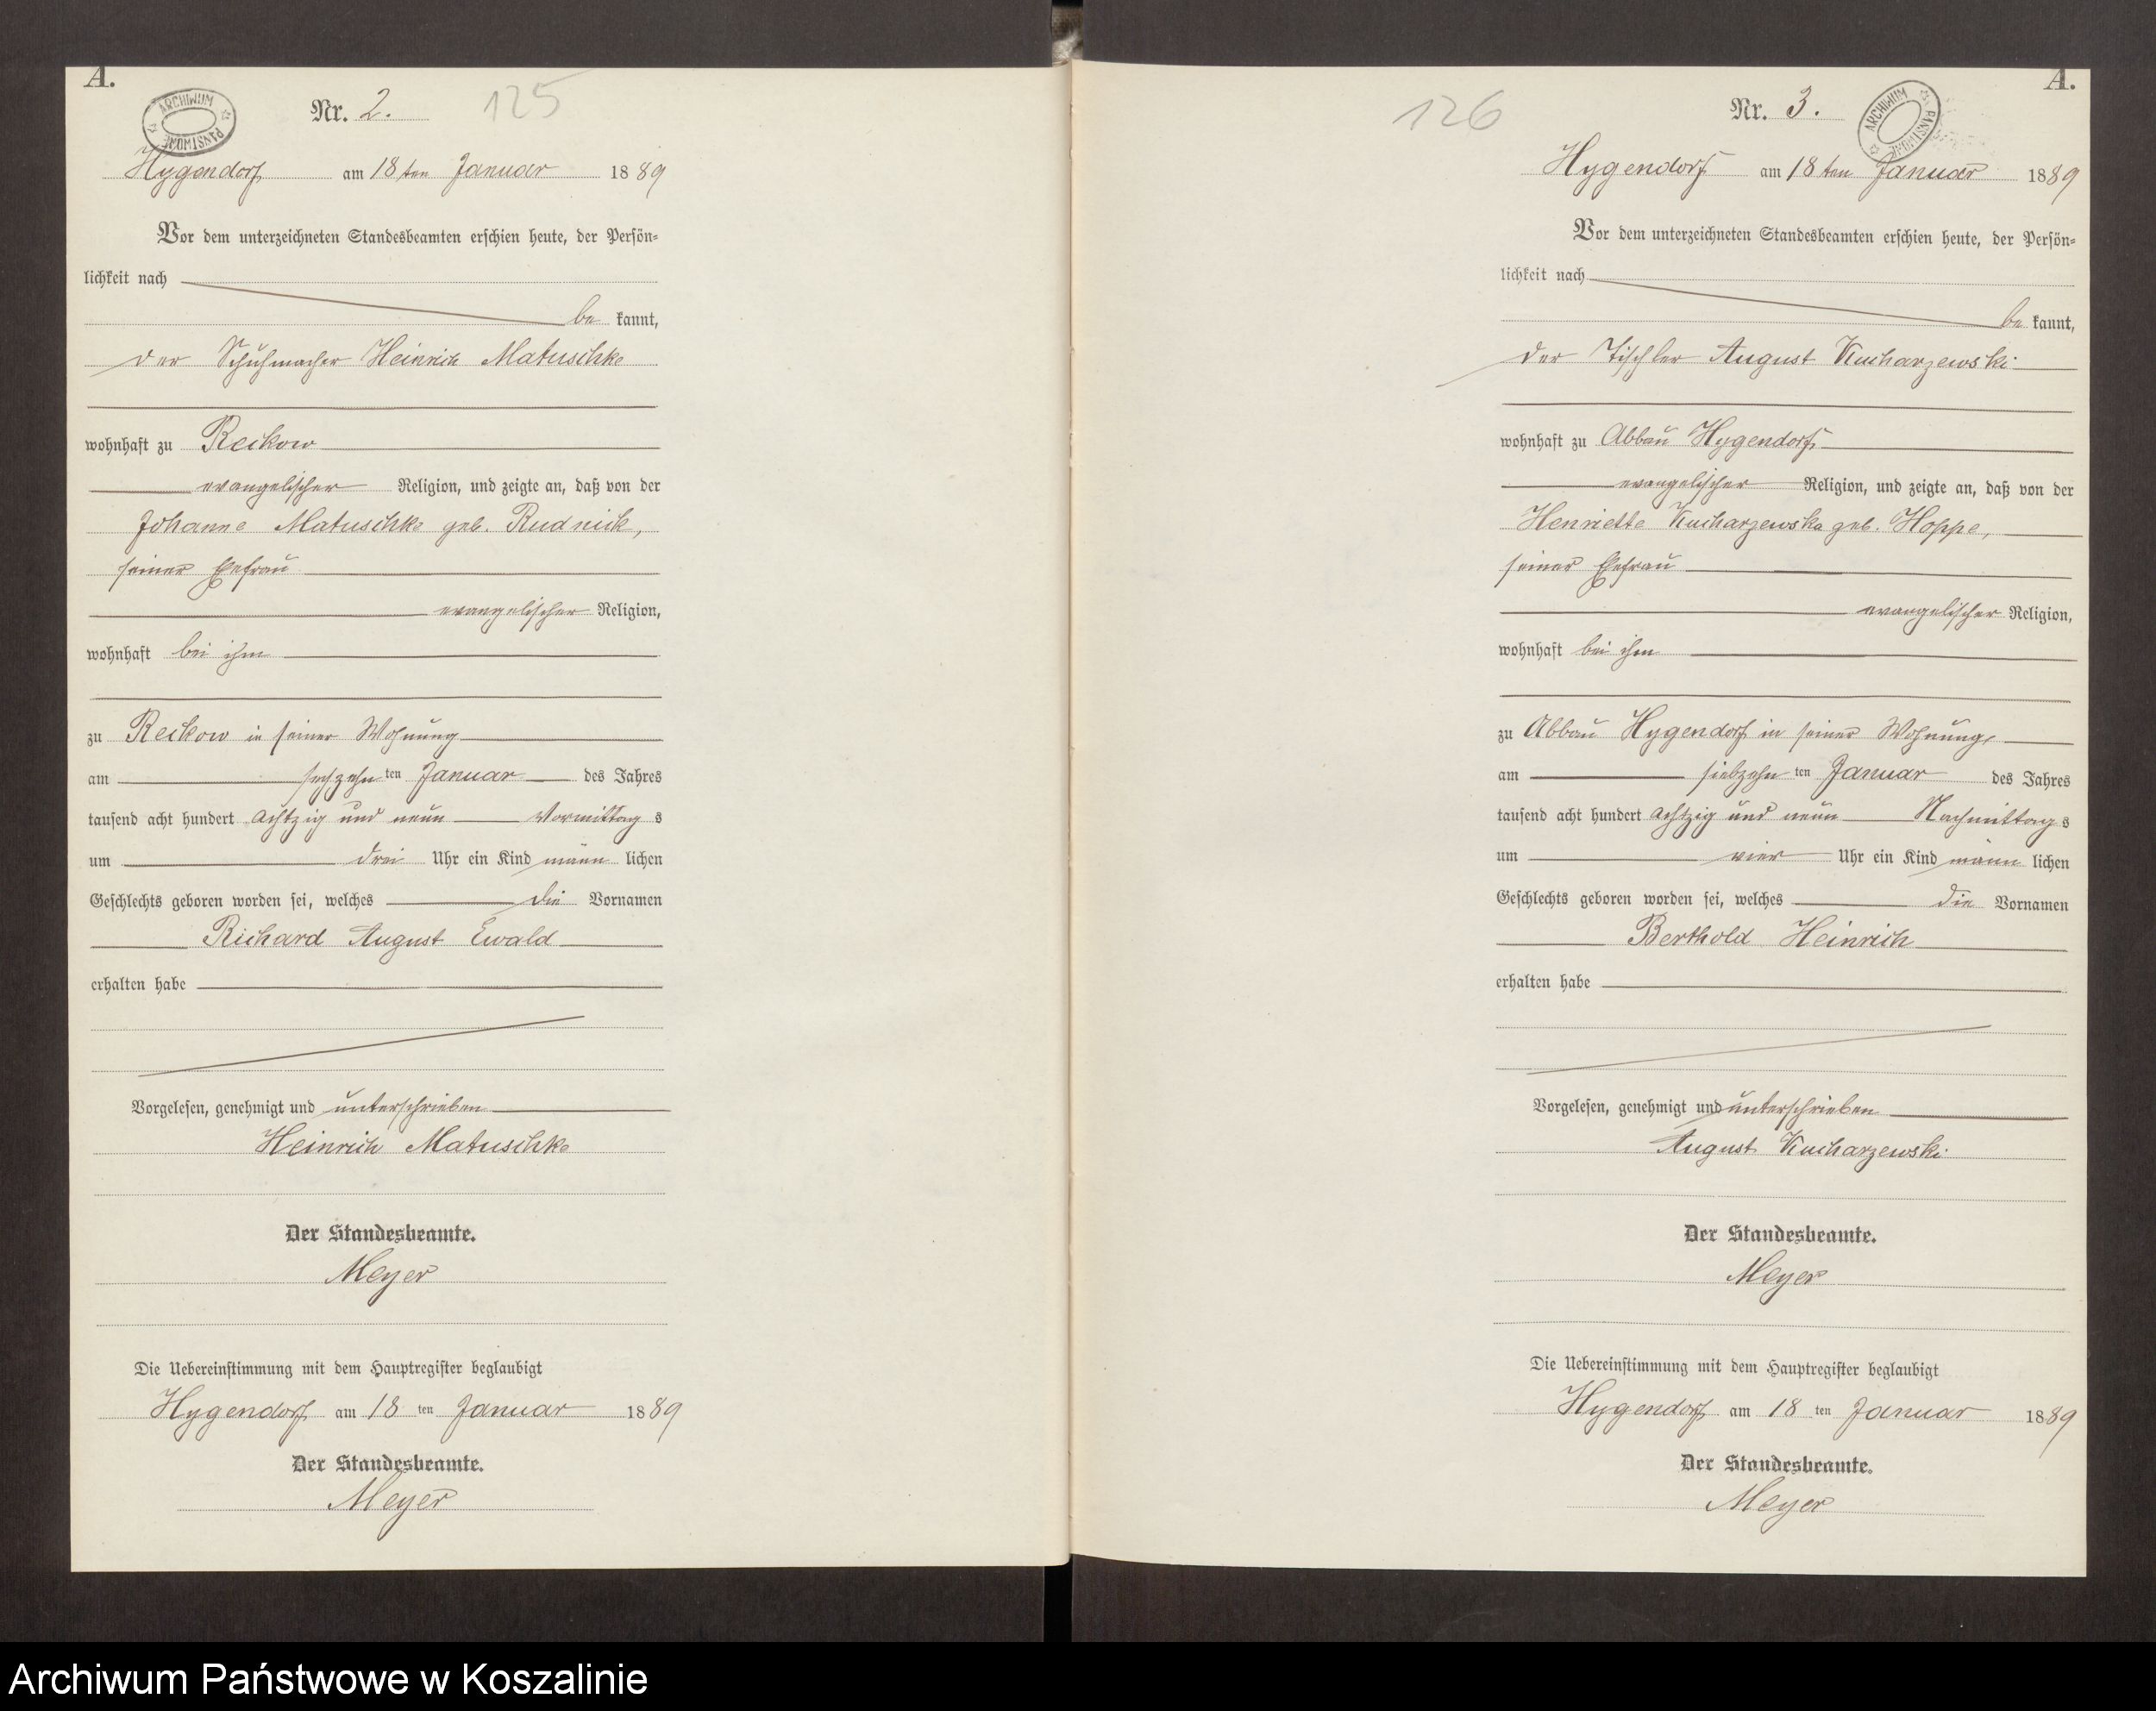 A.
ARCHIWUM PAŃSTWOWE
Nr. 2.
125
Hygendorf am 18ten Januar 1889
Vor dem unterzeichneten Standesbeamten erschien heute, der Persön=
lichkeit nach
be kannt,
der Schuhmacher Heinrich Matuschke
wohnhaft zu Reckow
evangelischer Religion, und zeigte an, daß von der
Johanne Matuschke geb. Rudnick,
seiner Ehefrau
evangelischer Religion,
wohnhaft bei ihm
zu Reckow in seiner Wohnung
am sechzehn ten Januar des Jahres
tausend acht hundert achtzig und neun Vormittag s
um drei Uhr ein Kind männ lichen
Geschlechts geboren worden sei, welches die Vornamen
Richard August Ewald
erhalten habe
Vorgelesen, genehmigt und unterschrieben
Heinrich Matuschke
Der Standesbeamte.
Meyer
Die Uebereinstimmung mit dem Hauptregister beglaubigt
Hygendorf am 18 ten Januar 1889
Der Standesbeamte.
Meyer
A.
126
Nr. 3.
ARCHIWUM PAŃSTWOWE
Hygendorf am 18ten Januar 1889
Vor dem unterzeichneten Standesbeamten erschien heute, der Persön=
lichkeit nach
be kannt,
der Tischler August Kucharzewski
wohnhaft zu Abbau Hygendorf
evangelischer Religion, und zeigte an, daß von der
Henriette Kucharzewska geb. Hoppe,
seiner Ehefrau
evangelischer Religion,
wohnhaft bei ihm
zu Abbau Hygendorf in seiner Wohnung,
am siebzehn ten Januar des Jahres
tausend acht hundert achtzig und neun Nachmittag s
um vier Uhr ein Kind männ lichen
Geschlechts geboren worden sei, welches die Vornamen
Berthold Heinrich
erhalten habe
Vorgelesen, genehmigt und unterschrieben
August Kucharzewski
Der Standesbeamte.
Meyer
Die Uebereinstimmung mit dem Hauptregister beglaubigt
Hygendorf am 18 ten Januar 1889
Der Standesbeamte.
Meyer
Archiwum Państwowe w Koszalinie